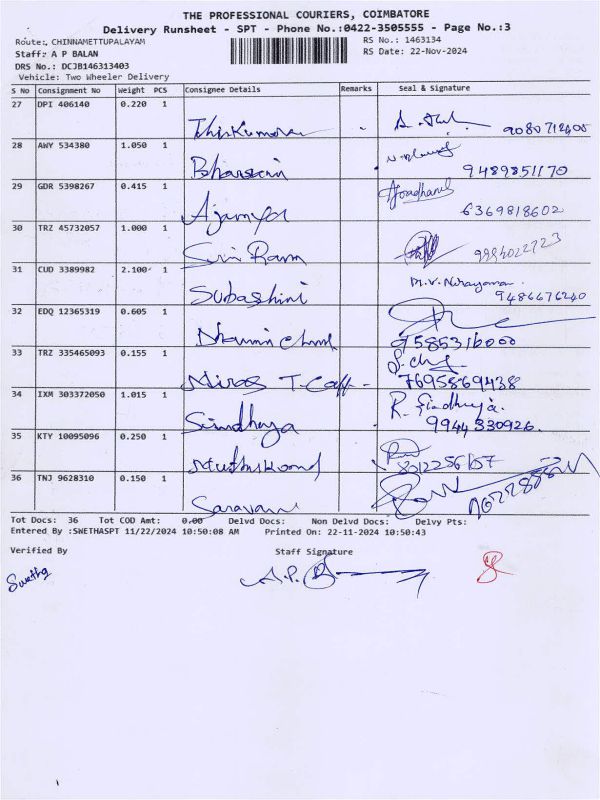 THE PROFESSIONAL COURIERS, COIMBATORE
Delivery Runsheet - SPT - Phone No.:0422-3505555 - Page No.:3
Route: CHINNAMETTUPALAYAM RS No.: 1463134
Staff: A P BALAN RS Date: 22-Nov-2024
DRS No.: DCJB146313403
Vehicle: Two Wheeler Delivery
S No Consignment No Weight PCS Consignee Details Remarks Seal & Signature
27 DPI 406140 0.220 1
9080712600
28 AWY 534380 1.050 1
9489851170
29 GDR 5398267 0.415 1
6369818602
30 TRZ 45732057 1.000 1
Sri Ram
31 CUD 3389982 2.100 1 M.V. Narayanan
Subashini 9486676240
32 EDQ 12365319 0.605 1
9585316000
33 TRZ 335465093 0.155 1
7695869438
34 IXM 303372050 1.015 1 R. Sindhuja.
Sindhuja 9944330926.
35 KTY 10095096 0.250 1
36 TNJ 9628310 0.150 1
Saravan
Tot Docs: 36 Tot COD Amt: 0.00 Delvd Docs: Non Delvd Docs: Delvy Pts:
Entered By :SWETHASPT 11/22/2024 10:50:08 AM Printed On: 22-11-2024 10:50:43
Verified By Staff Signature
Swetha A.P.